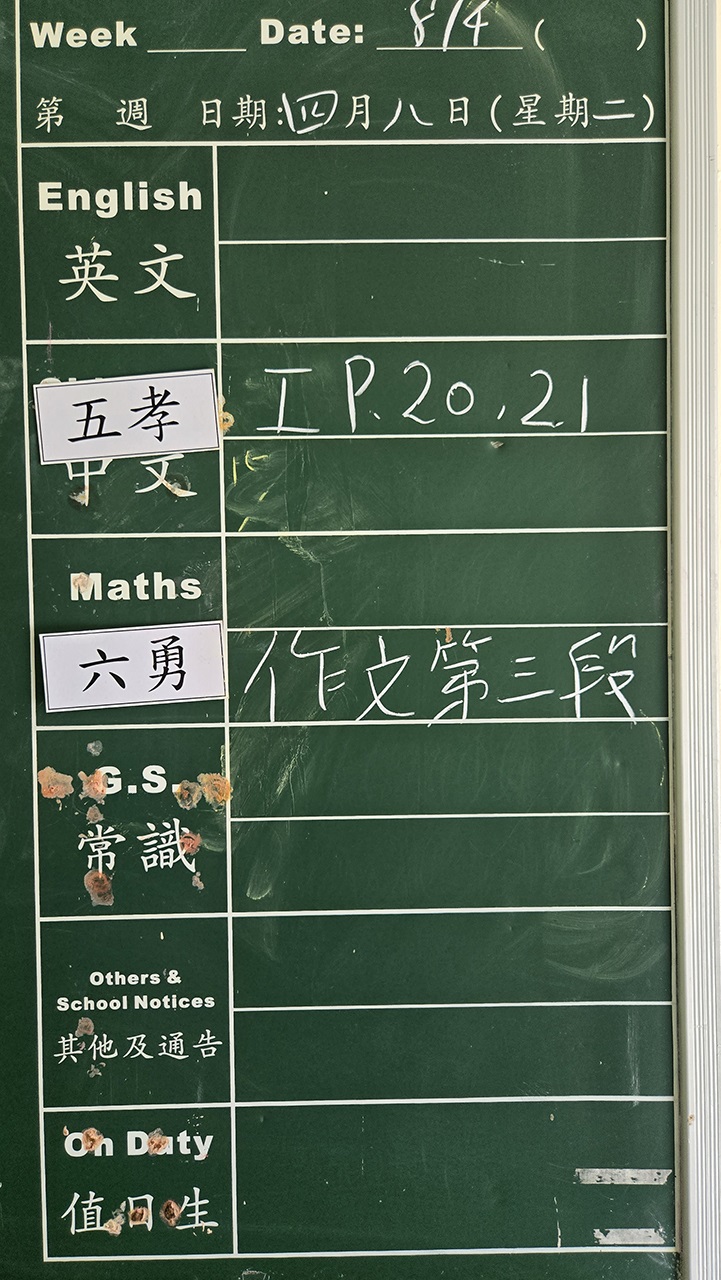 Week Date: 8/4 ( )
第 週 日期:四月八日(星期二)
English
英文
五孝 工 P.20,21
中文
Maths
六勇 作文第三段
G.S.
常識
Others &
School Notices
其他及通告
On Duty
值日生